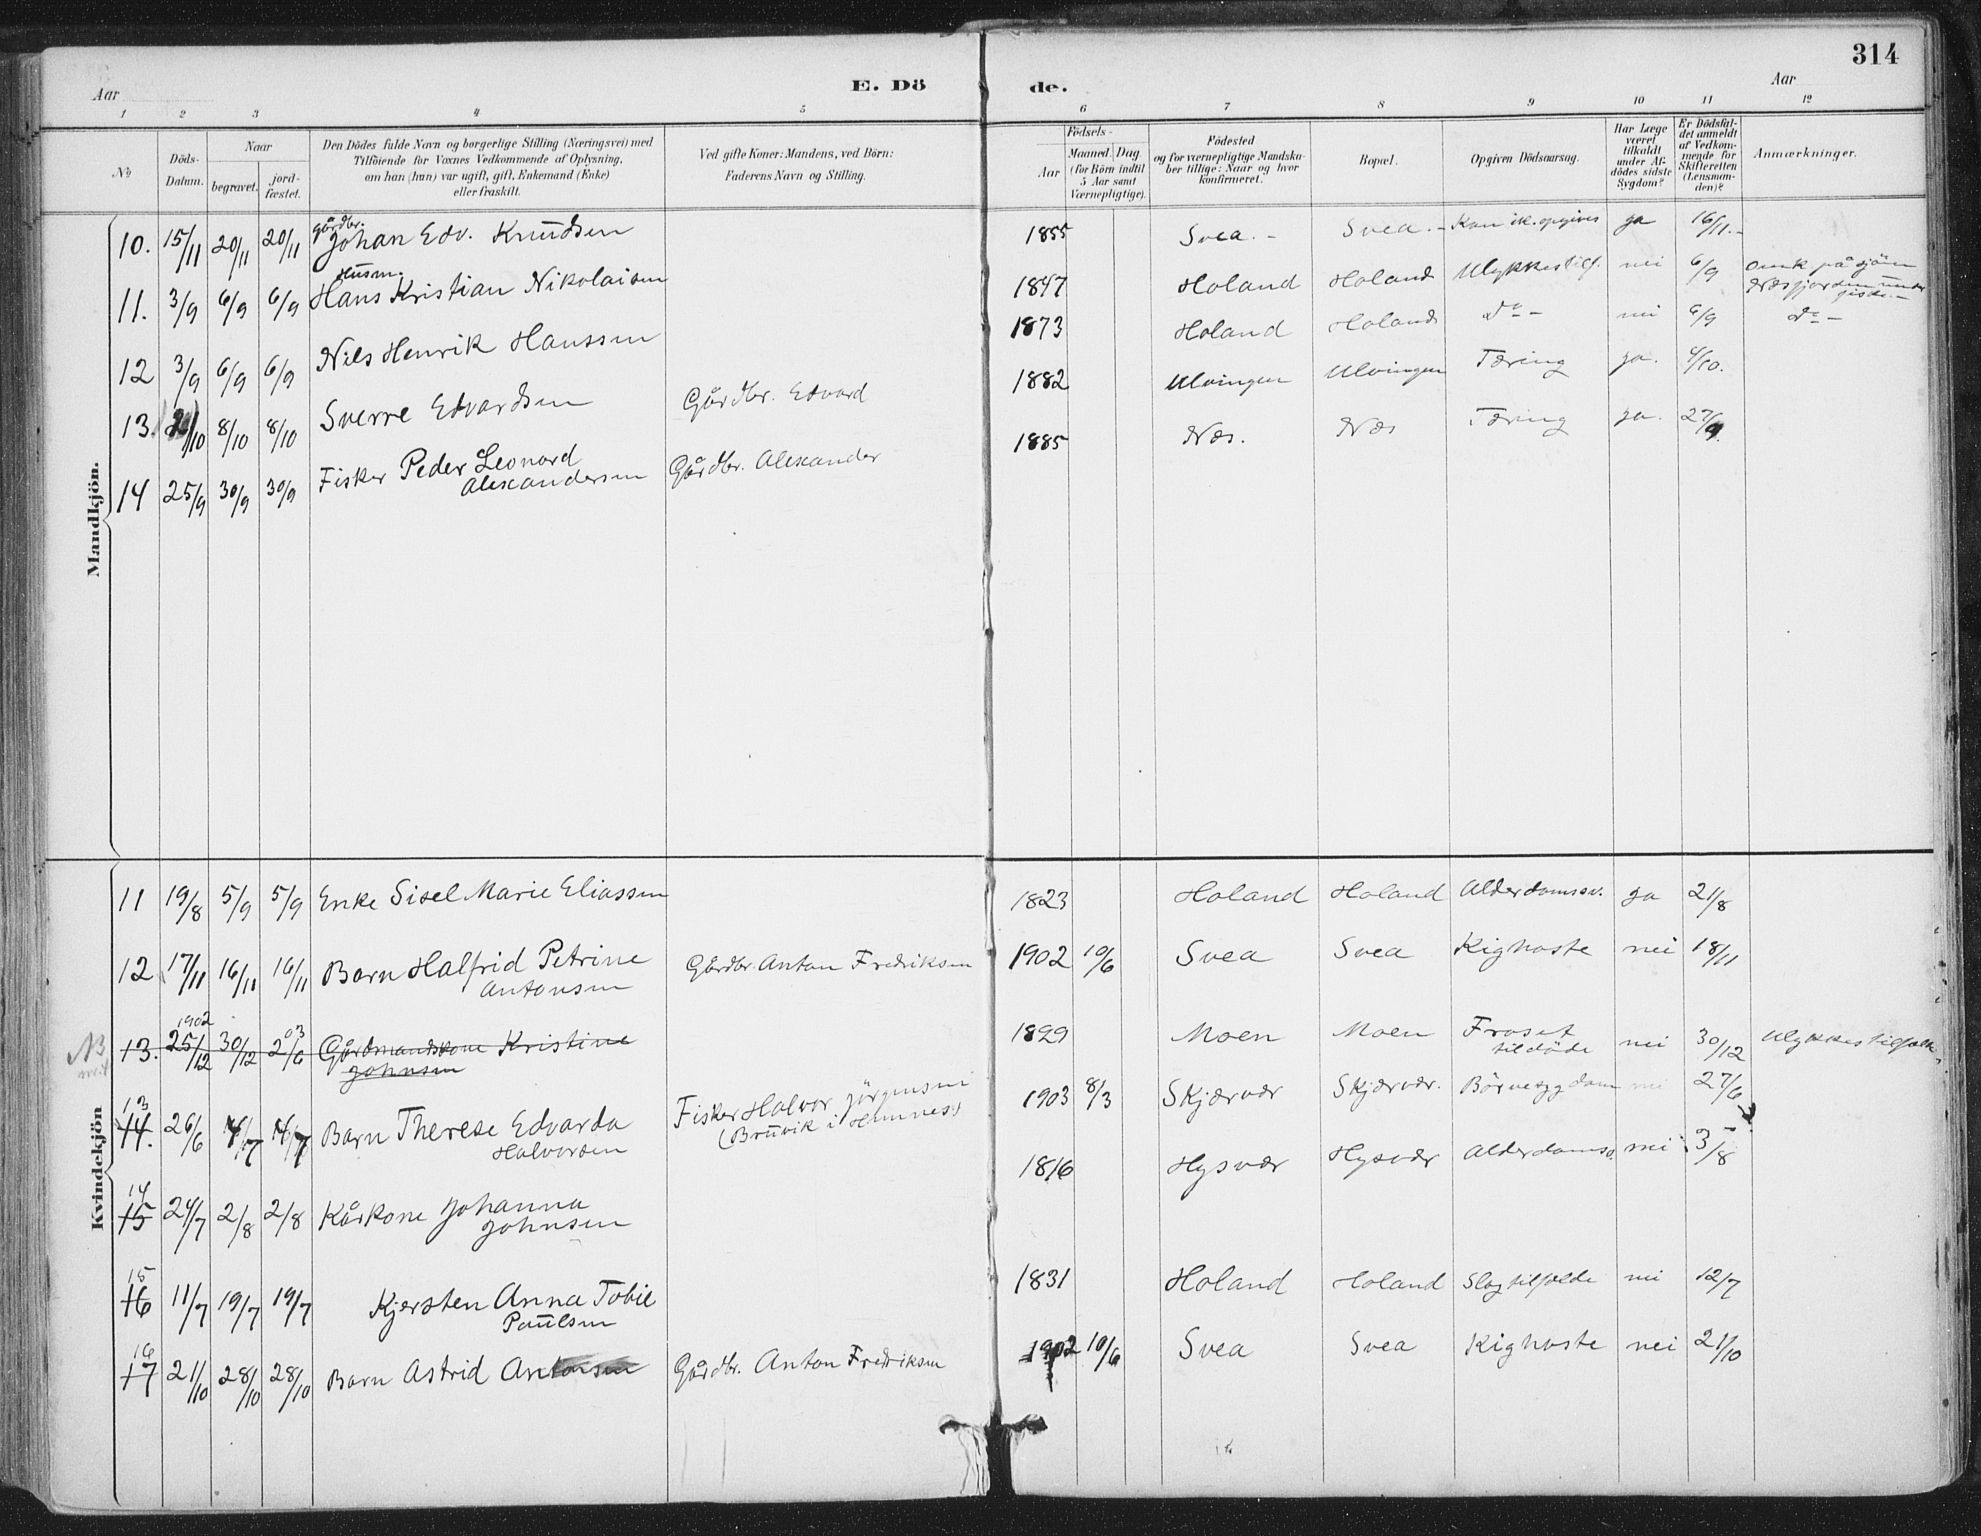 314
E. Dö de.
Aar Aar
1 2 3 4 5 6 7 8 9 10 11 12
№
Döds-Datum.
Naar
begravet.
jord-fæstet.
Den Dödes fulde Navn og borgerlige Stilling (Næringsvei) med
Tilföiende for Voxnes Vedkommende af Oplysning,
om han (hun) var ugift, gift, Enkemand (Enke)
eller fraskilt.
Ved gifte Koner: Mandens, ved Börn:
Faderens Navn og Stilling.
Födsels-
Aar
Maaned. Dag
(for Börn indtil
5 Aar samt
Værnepligtige).
Födested
og for værnepligtige Mandska-
ber tillige: Naar og hvor
konfirmeret.
Bopæl.
Opgiven Dödsaarsag.
Har Læge
været
tilkaldt
under Af-
dödes sidste
Sygdom?
Er Dödsfal-
det anmeldt
af Vedkom-
mende for
Skifteretten
(Lensman-
den)?
Anmærkninger.
Mandkjön.
10. 15/11 20/11 20/11 Gårdbr. Johan Edv. Knudsen 1855 Svea.- Svea.- Kan ik. opgives ja 16/11.-
11. 3/9 6/9 6/9 Husm. Hans Kristian Nikolaisen 1847 Holand Holand Ulykkestilf. nei 6/9 Omk på sjøen
Næsfjorden
12 3/9 6/9 6/9 Nils Henrik Hanssen 1873 Holand Holand Do - nei 6/9 Do -
13. 2/10 8/10 8/10 Sverre Edvardsen Gårdbr. Edvard 1882 Ulvingen Ulvingen Tæring ja. 4/10.
14 25/9 30/9 30/9 Fisker Peder Leonard
Alexandersen Gårdbr. Alexander 1885 Næs. Næs Tæring ja. 27/9.
Kvindekjön
11 19/8 5/9 5/9 Enke Sisel Marie Eliassen 1823 Holand Holand Alderdomssv. ja 21/8
12 17/11 16/11 16/11 Barn Halfrid Petrine
Antonsen Gårdbr. Anton Fredriksen 1902 10/6 Svea Svea Kighoste nei 18/11
NB
1902 03
13. 25/12 30/12 2/6 Gårdmandskone Kristine
Johnsen 1899 Moen Moen Froset
tildöde nei 30/12 Ulykkestilfælde
13
14. 26/6 4/7 4/7 Barn Therese Edvarda
Halvorsen Fisker Halvor Jörgensen
(Bruvik i Hemnes) 1903 8/3 Skjærvær Skjærvær. Börnesygdom nei 27/6
14
15 24/7 2/8 2/8 Kårkone Johanna
Johnsen 1816 Hysvær Hysvær Alderdomssv. nei 3/8
15
16 11/7 19/7 19/7 Kjersten Anna Tobie
Paulsen 1831 Holand Holand Slagtilfælde nei 12/7
16
17 21/10 28/10 28/10 Barn Astrid Antonsen Gårdbr. Anton Fredriksen 1902 10/6 Svea Svea Kighoste nei 21/10